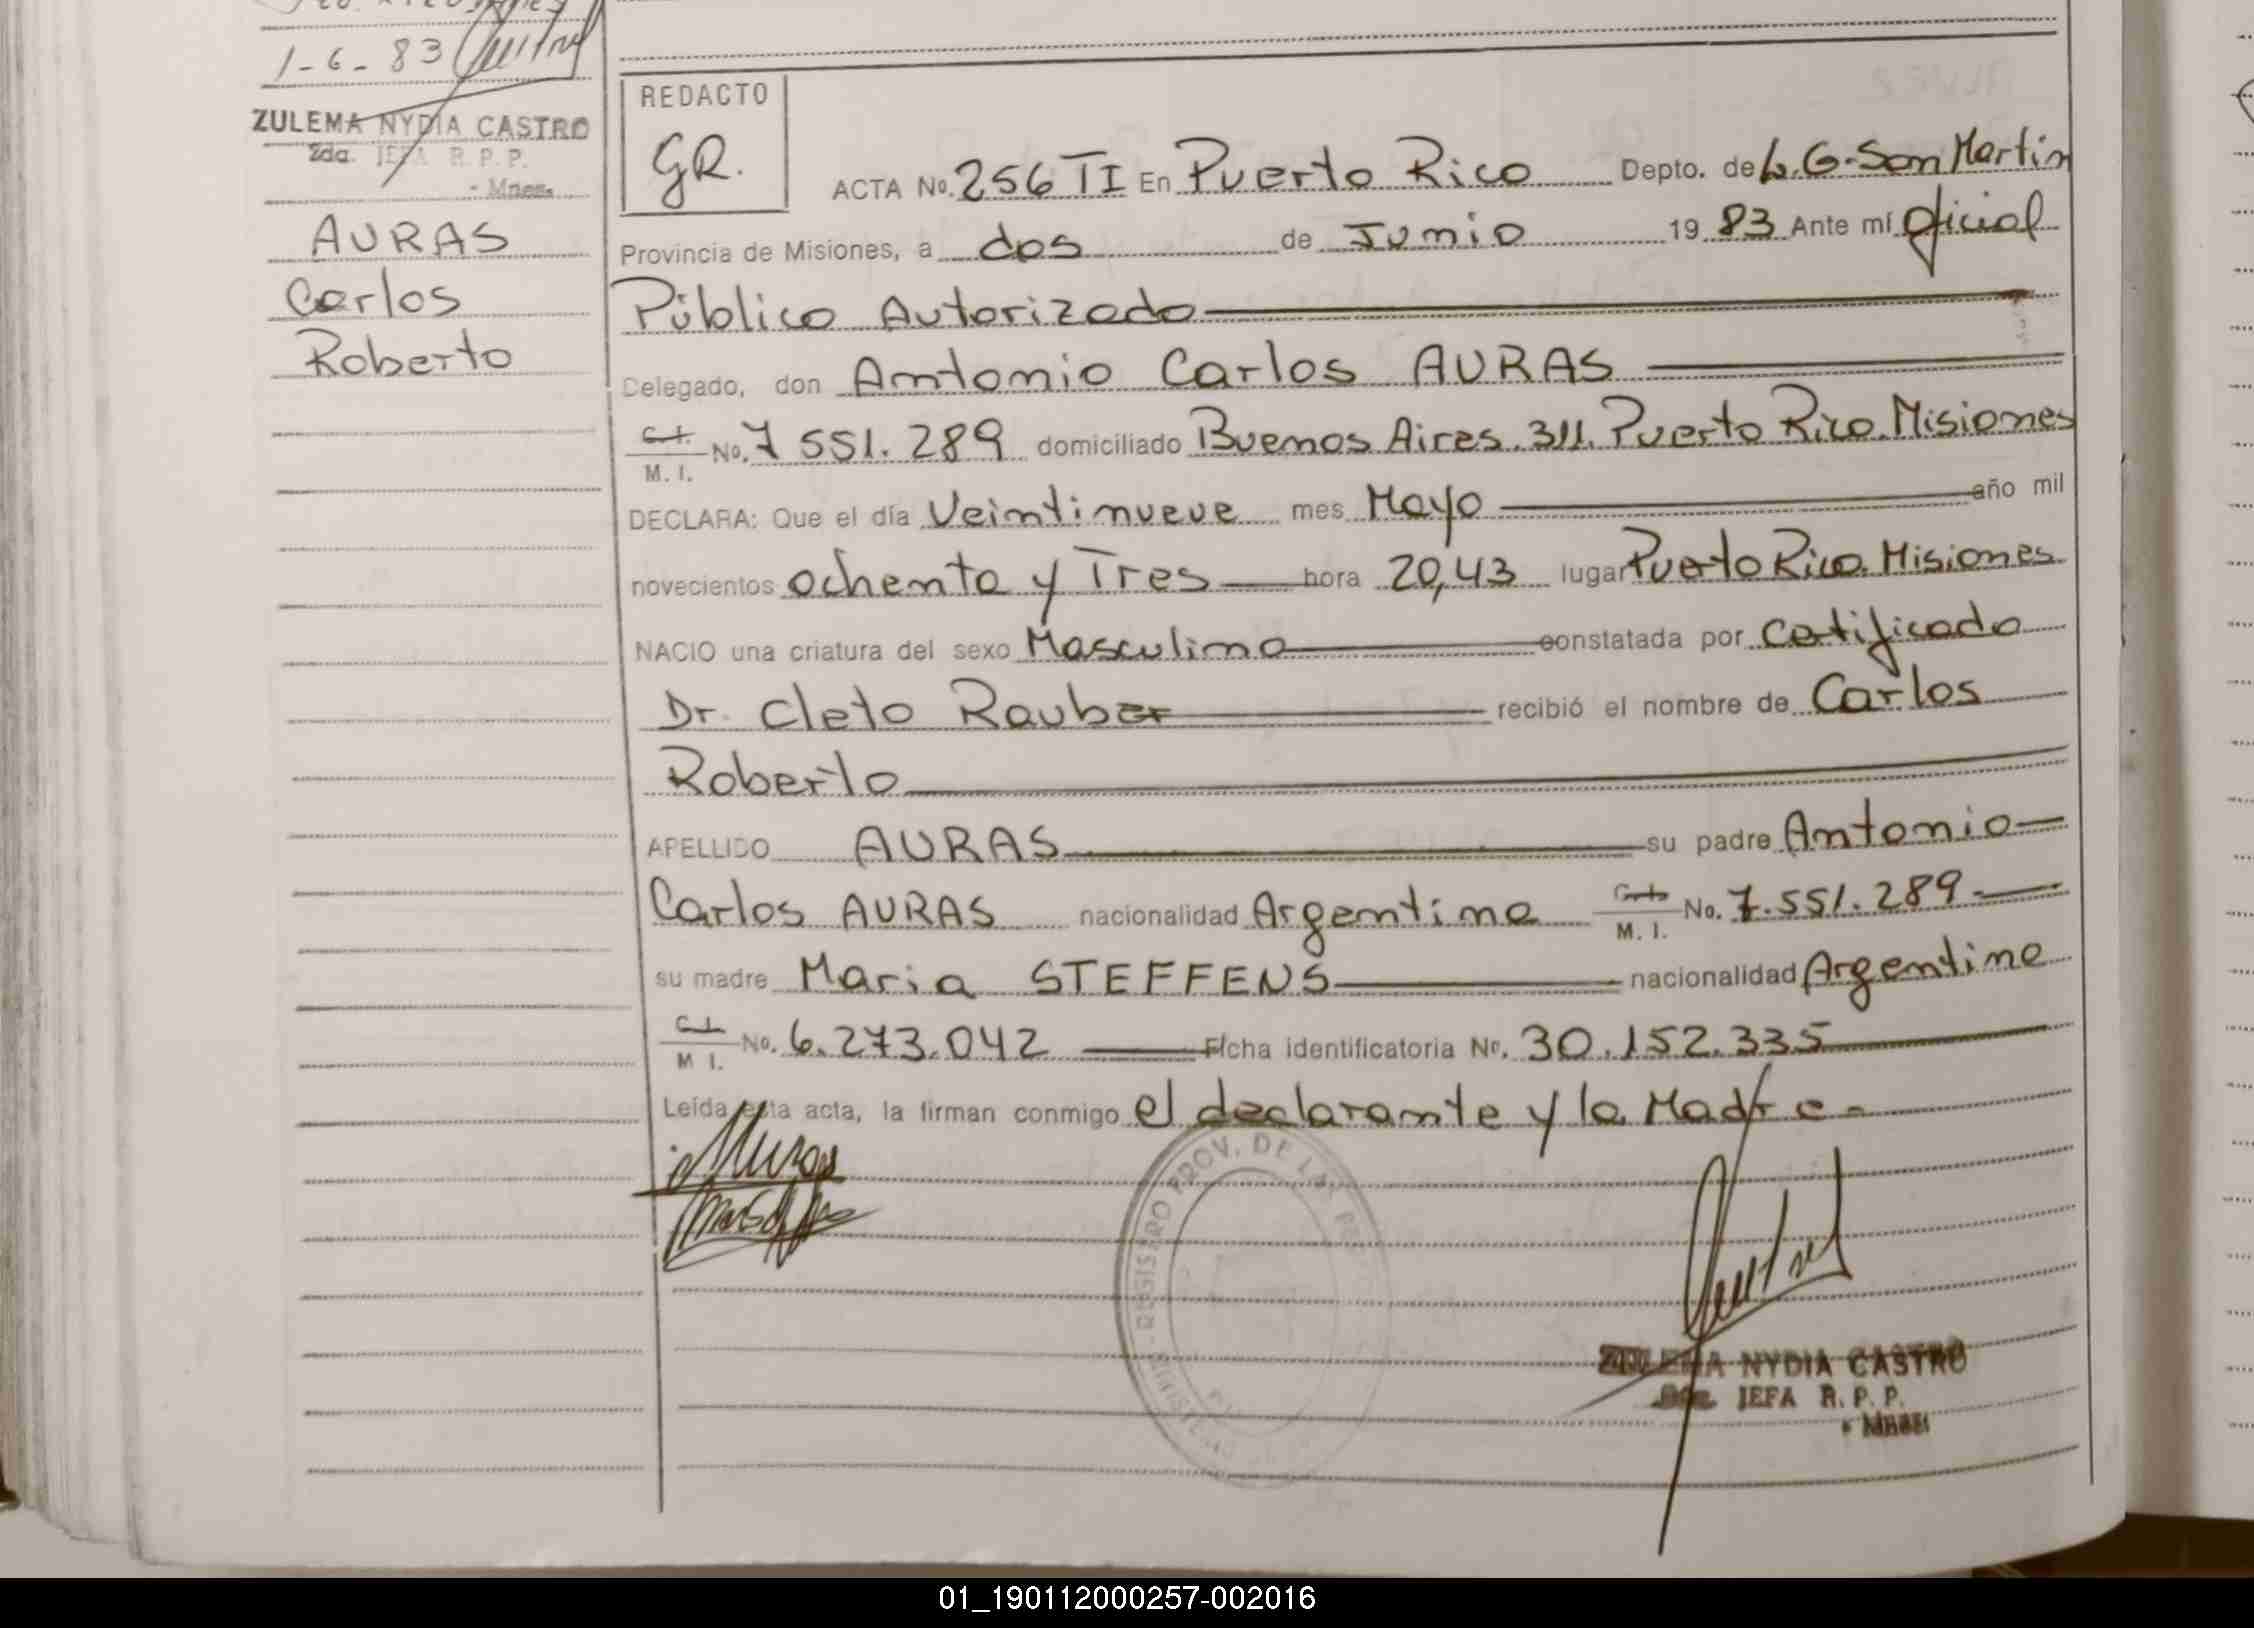 1-6-83
ZULEMA NYDIA CASTRO
2da. JEFA R. P. P.
- Mnes.
AURAS
Carlos
Roberto
REDACTO
GR.
ACTA No. 256 TI En Puerto Rico Depto. de L. G. San Martin
Provincia de Misiones, a dos de Junio 1983 Ante mí Oficial
Público Autorizado
Delegado, don Antonio Carlos AURAS
C. I. M. I. No. 7 551.289 domiciliado Buenos Aires 311. Puerto Rico. Misiones
DECLARA: Que el día Veintinueve mes Mayo año mil
novecientos ochenta y Tres hora 20,43 lugar Puerto Rico. Misiones
NACIO una criatura del sexo Masculino constatada por Cetificado
Dr. Cleto Rauber recibió el nombre de Carlos
Roberto
APELLIDO AURAS su padre Antonio
Carlos AURAS nacionalidad Argentina C. I. M. I. No. 7.551.289
su madre Maria STEFFENS nacionalidad Argentina
C. I. M I. No. 6.273.042 Ficha identificatoria No. 30.152.335
Leída esta acta, la firman conmigo el declarante y la Madre -
REGISTRO PROV. DE LAS PER
ZULEMA NYDIA CASTRO
2da. JEFA R. P. P.
- Mnes.
01_190112000257-002016